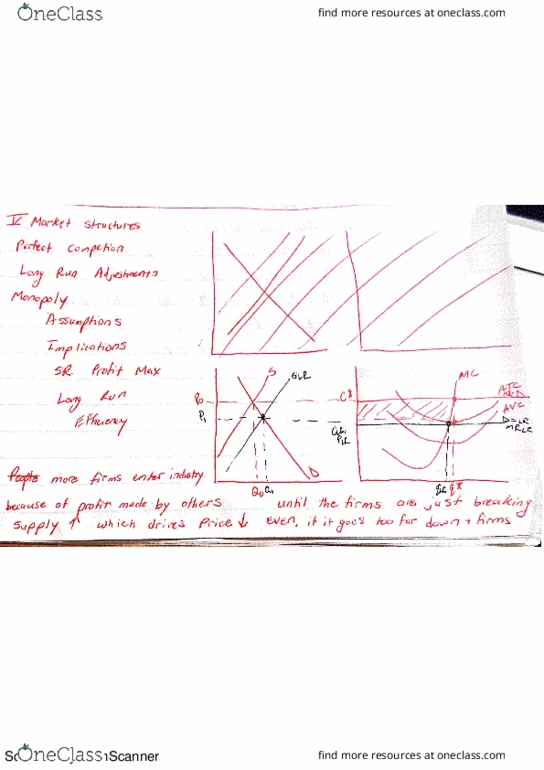 OneClass
find more resources at oneclass.com
V Market Structures
Perfect Competion
Long Run Adjustments
Monopoly
Assumptions
Implications
SR Profit Max
Long Run
Efficiency
S
SLR
P0
P1
D
Q0 Q1
MC
ATC
AVC
D=LR
MRLR
PLR
qLR q*
more firms enter industry
because of profit made by others
Supply ↑ which drives Price ↓
until the firms are just breaking
even, if it goes too far down + firms
OneClass
Scanner
find more resources at oneclass.com